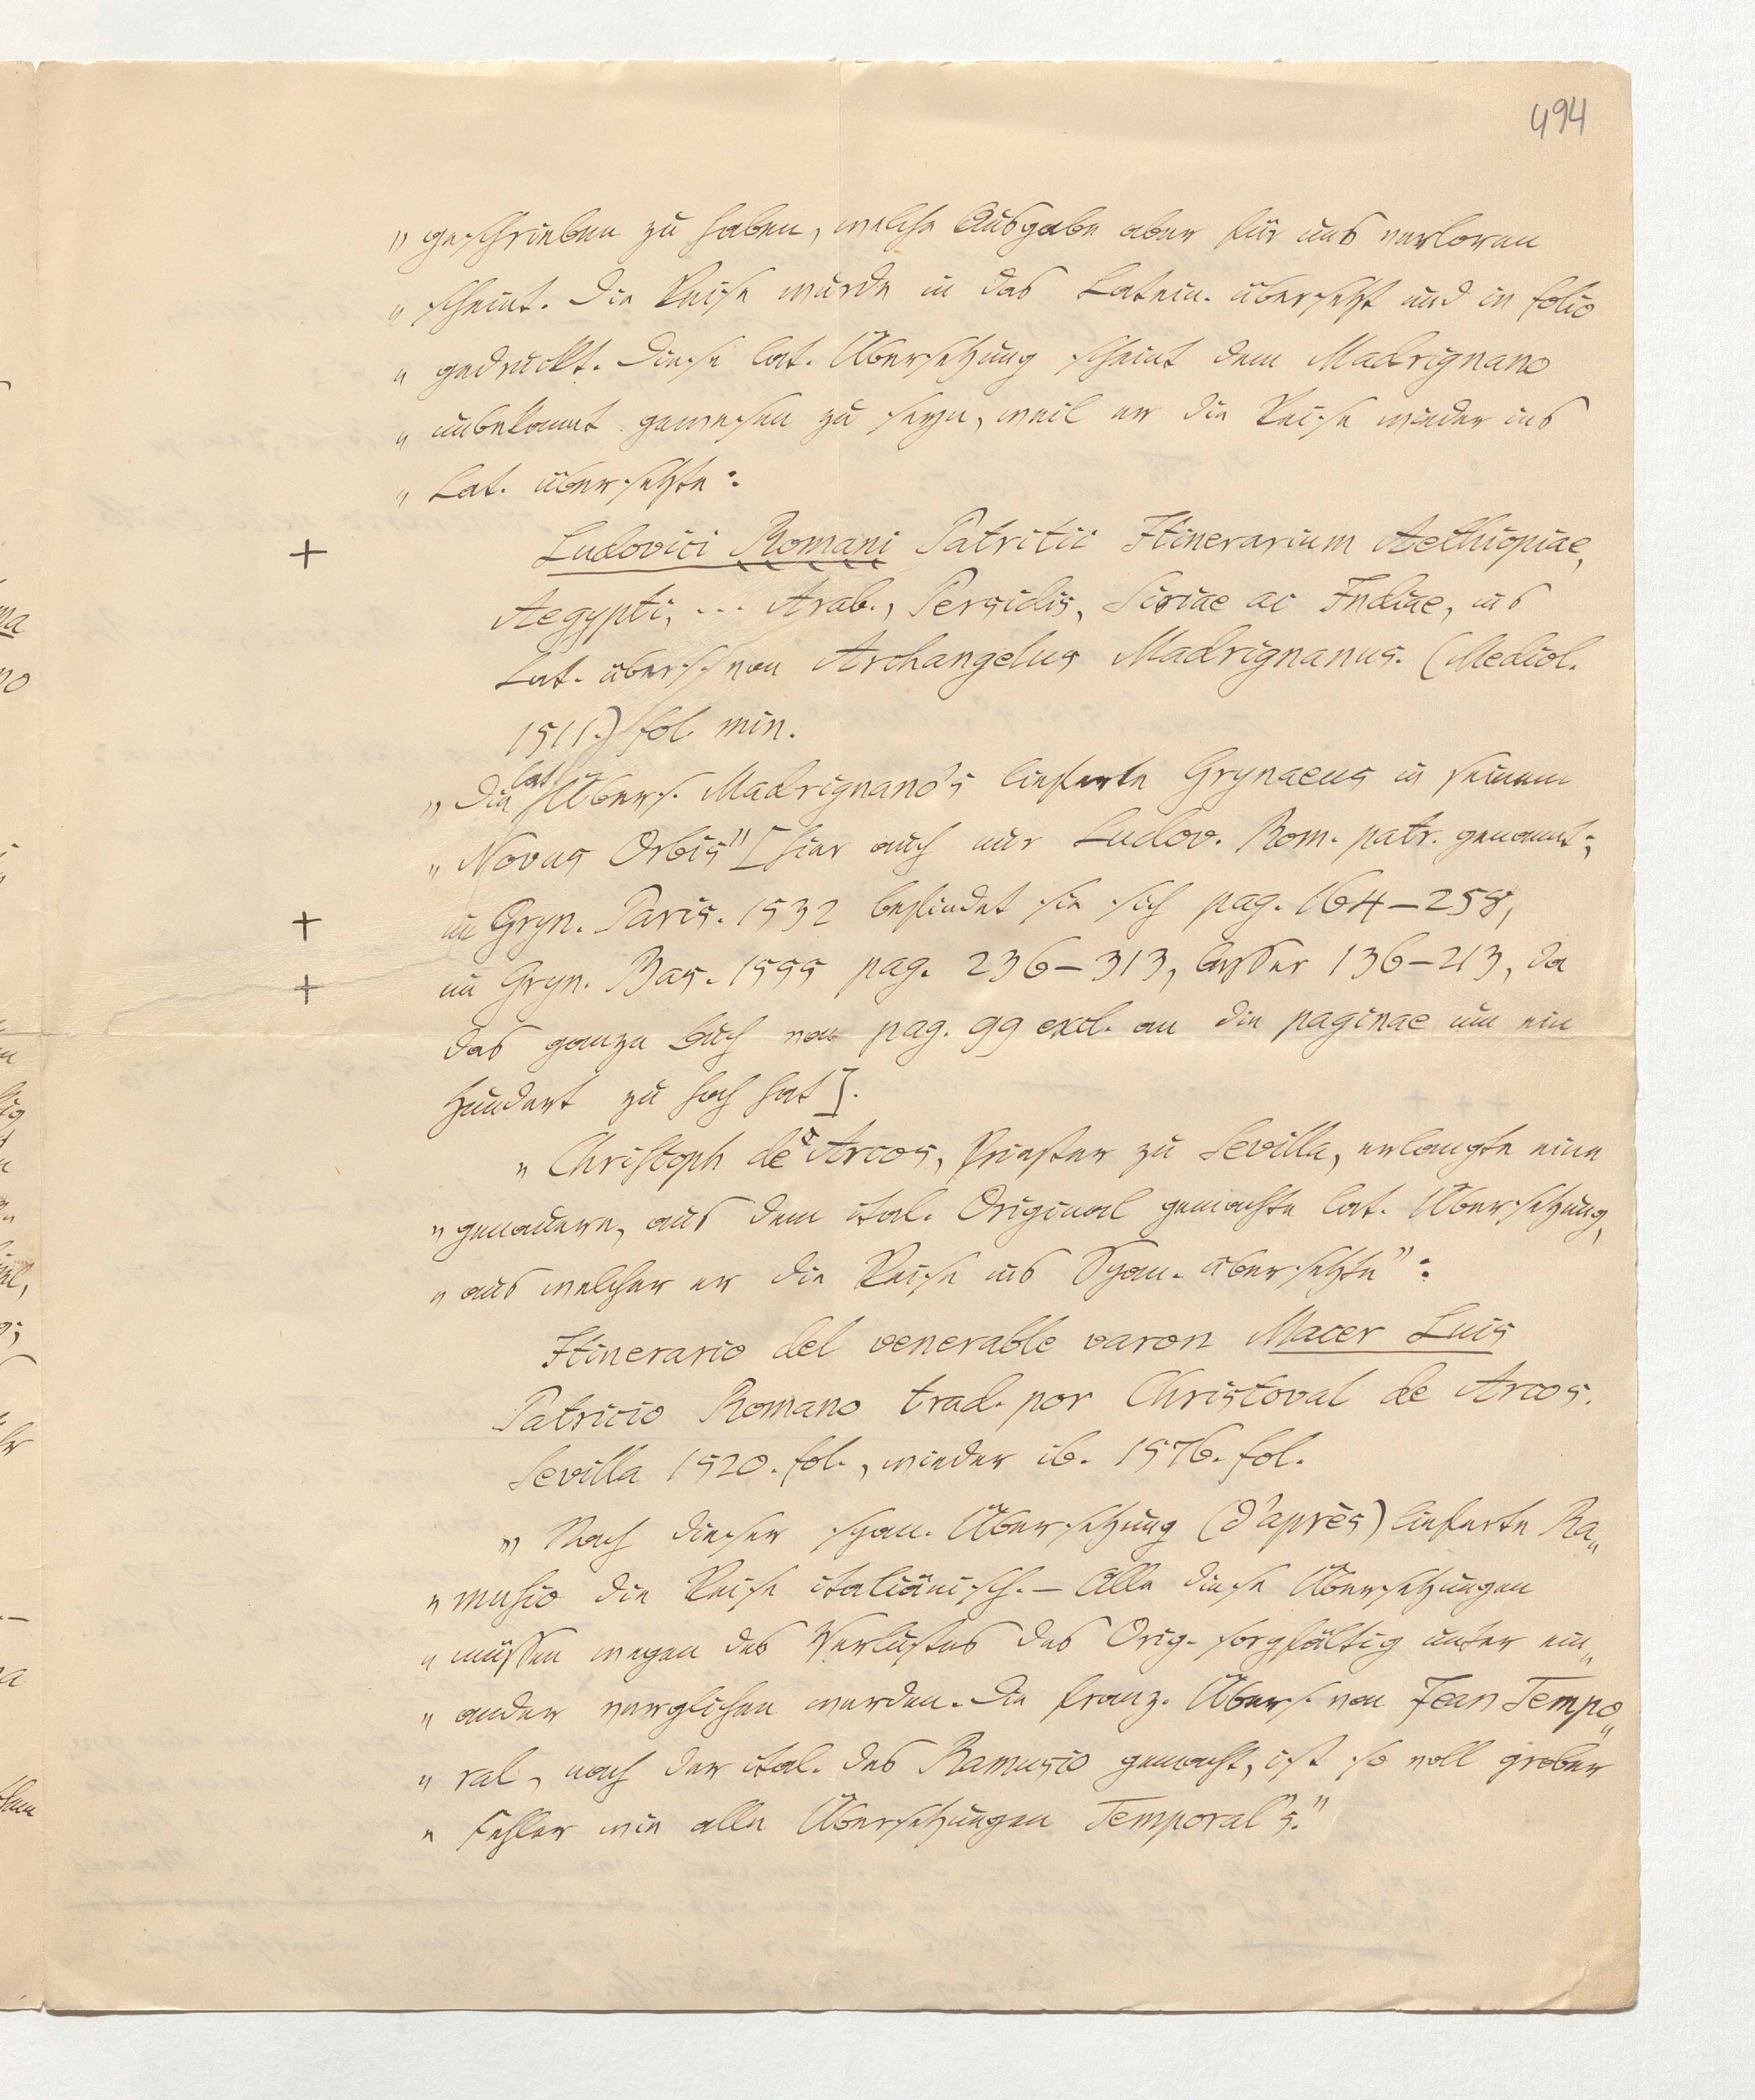 494
„ geschrieben zu haben, welche Ausgabe aber für uns verloren
„ scheint. Die Reise wurde in das Latein. übersetzt und in folio
„ gedruckt. Diese lat. Übersetzung scheint dem Madrignano
„ unbekannt gewesen zu seyn, weil er die Reise wieder ins
„ Lat. übersetzte:
+ Ludovici Romani Patritii Itinerarium Aethiopiae,
Aegypti, ... Arab., Persidis, Siriae ac Indiae, ins
Lat. übers. von Archangelus Madrignanus. (Mediol.
1511.) fol. min.
„ Die lat. Übers. Madrignano's lieferte Grynaeus in seinem
„ Novus Orbis" [hier auch nur Ludov. Rom. patr. genannt;
+ im Gryn. Paris. 1532 befindet sie sich pag. 164–258,
+ im Gryn. Bas. 1555 pag. 236–313, besser 136–213, da
das ganze Buch von pag. 99 excl. an die paginae um ein
Hundert zu hoch hat].
„ Christoph de Arcos, Priester zu Sevilla, erlangte eine
„ genauere, aus dem ital. Original gemachte lat. Übersetzung,
„ aus welcher er die Reise ins Span. übersetzte":
Itinerario del venerable varon Macer Luis
Patricio Romano trad. por Christoval de Arcos.
Sevilla 1520. fol., wieder ib. 1576. fol.
„ Nach dieser span. Übersetzung (d'après) lieferte Ra„
„ musio die Reise italiänisch. – Alle diese Übersetzungen
„ müssen wegen des Verlustes des Orig. sorgfältig unter ein„
„ ander verglichen werden. Die franz. Übers. von Jean Tempo„
„ ral, nach der ital. des Ramusio gemacht, ist so voll grober
„ Fehler wie alle Übersetzungen Temporal's."